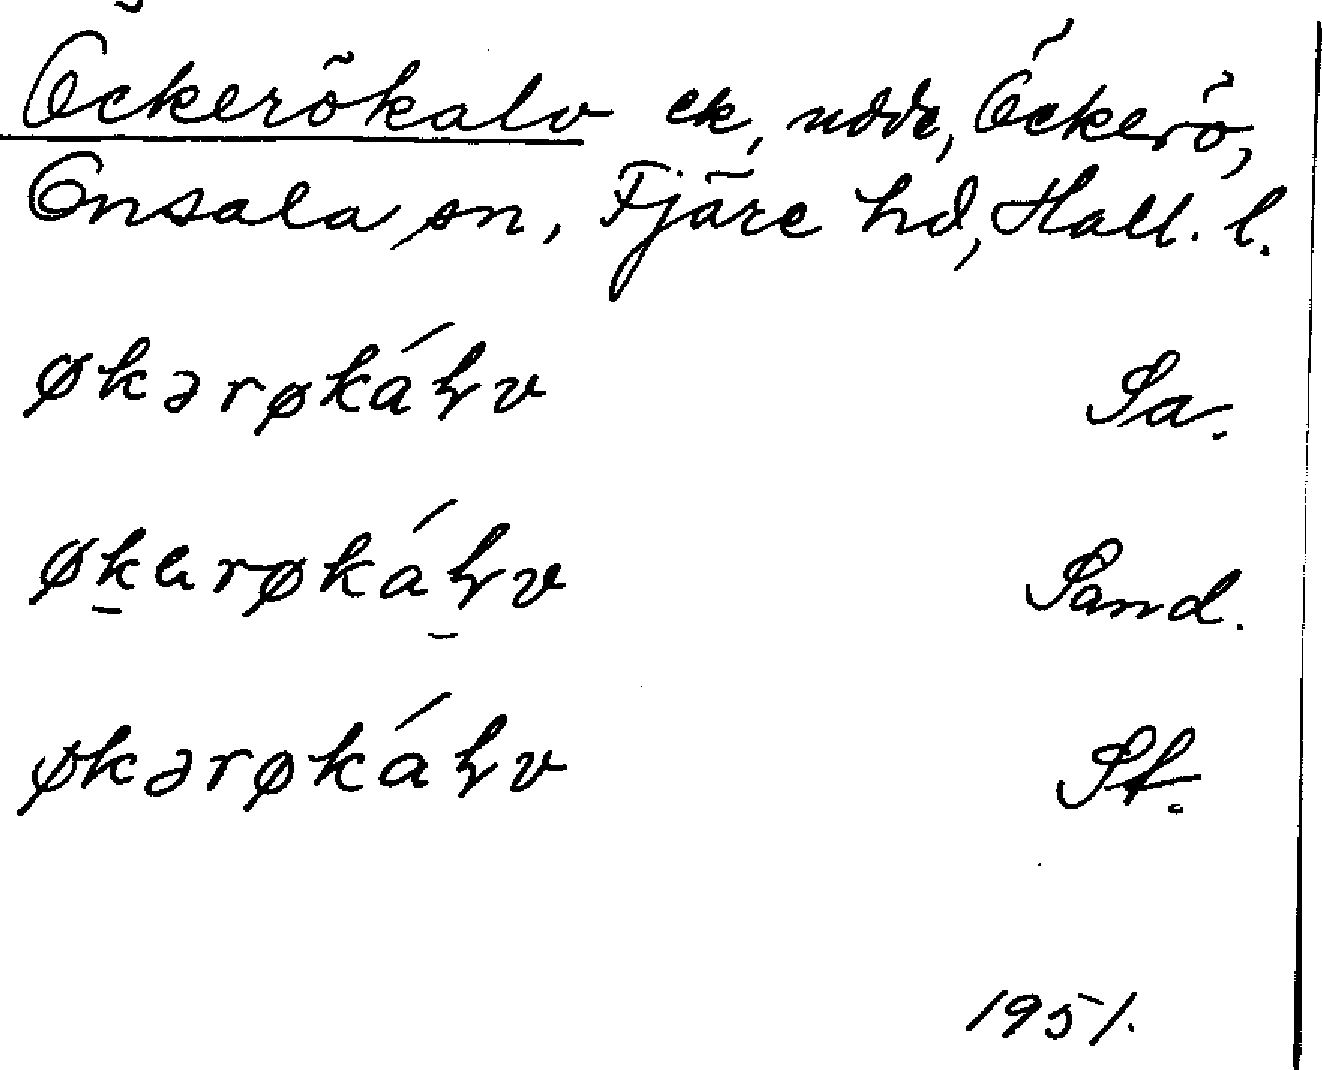 Öckerökalv ek, udde, Öckerö,
Onsala sn, Fjäre hd, Hall. l.
økərøkáƚv Sa.
økɐrøkáƚv Sand.
økərøkáƚv St.
1951.